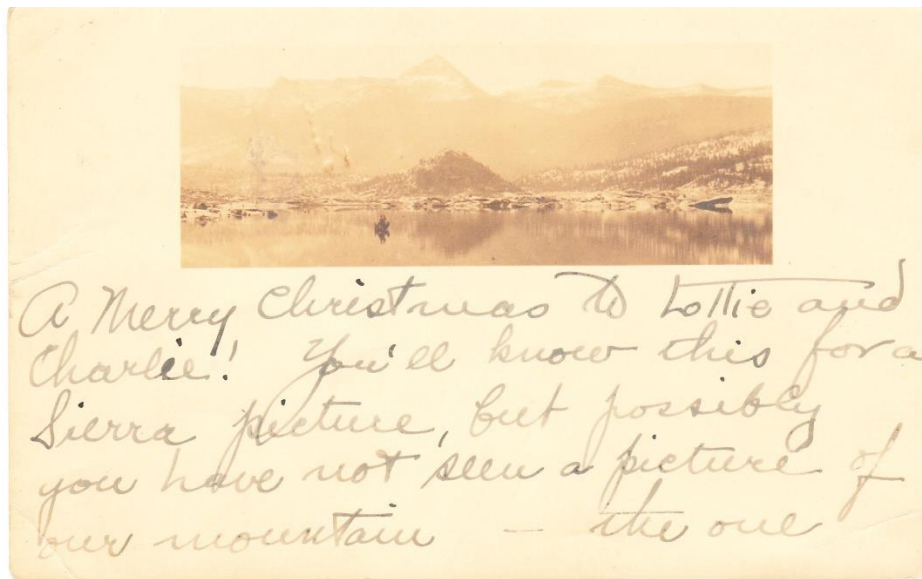 A Merry Christmas to Lottie and
Charlie! You'll know this for a
Sierra picture, but possibly
you have not seen a picture of
our mountain – the one